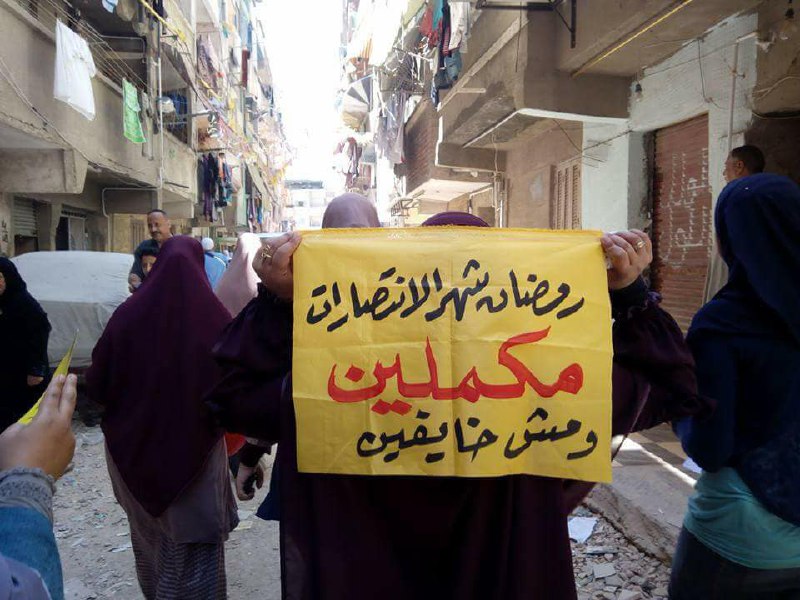 رمضان شهر الانتصارات
مكملين
ومش خايفين